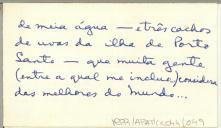 de meia água — e três cachos
de uvas da ilha de Porto
Santo — que muita gente
(entre a qual me incluo) considera
das melhores do mundo...